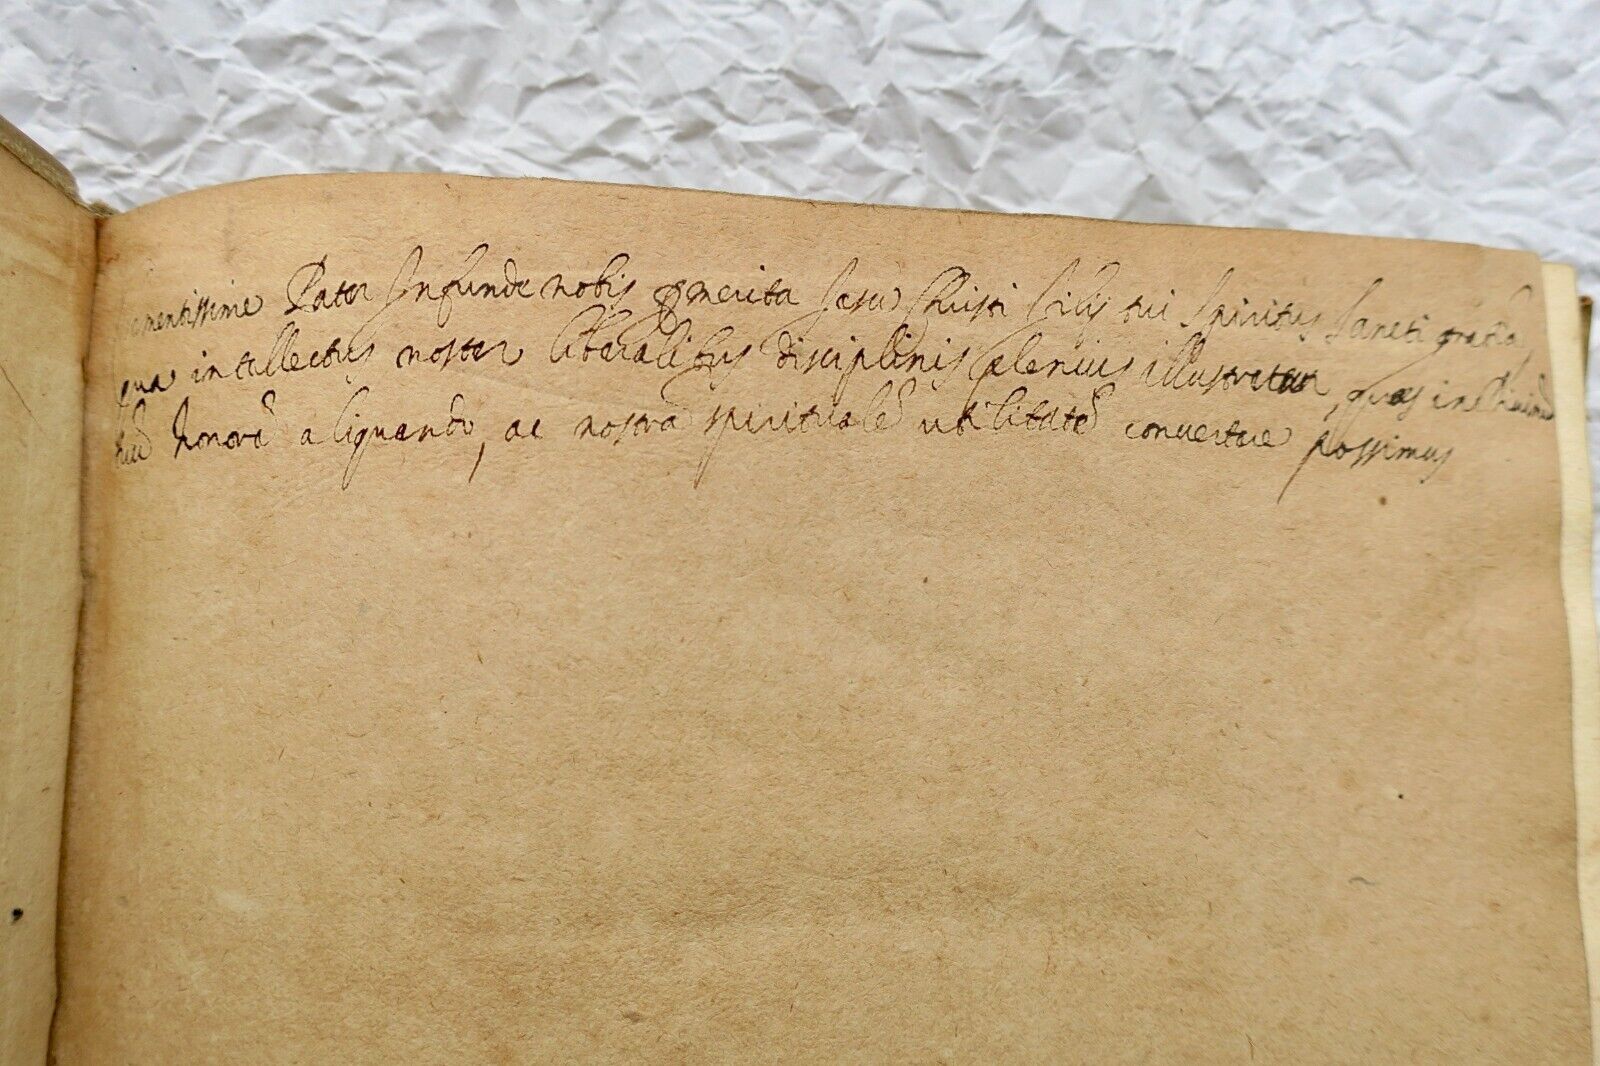 Clementissime Pater Infunde nobis p merita Jesu Christi Filij tui Spiritus Sancti gratiā,
qua intellectus noster liberalibus disciplinis plenius illustretur, quas in
tuū honorē aliquando, ac nostrā spiritualē utilitatē convertere possimus